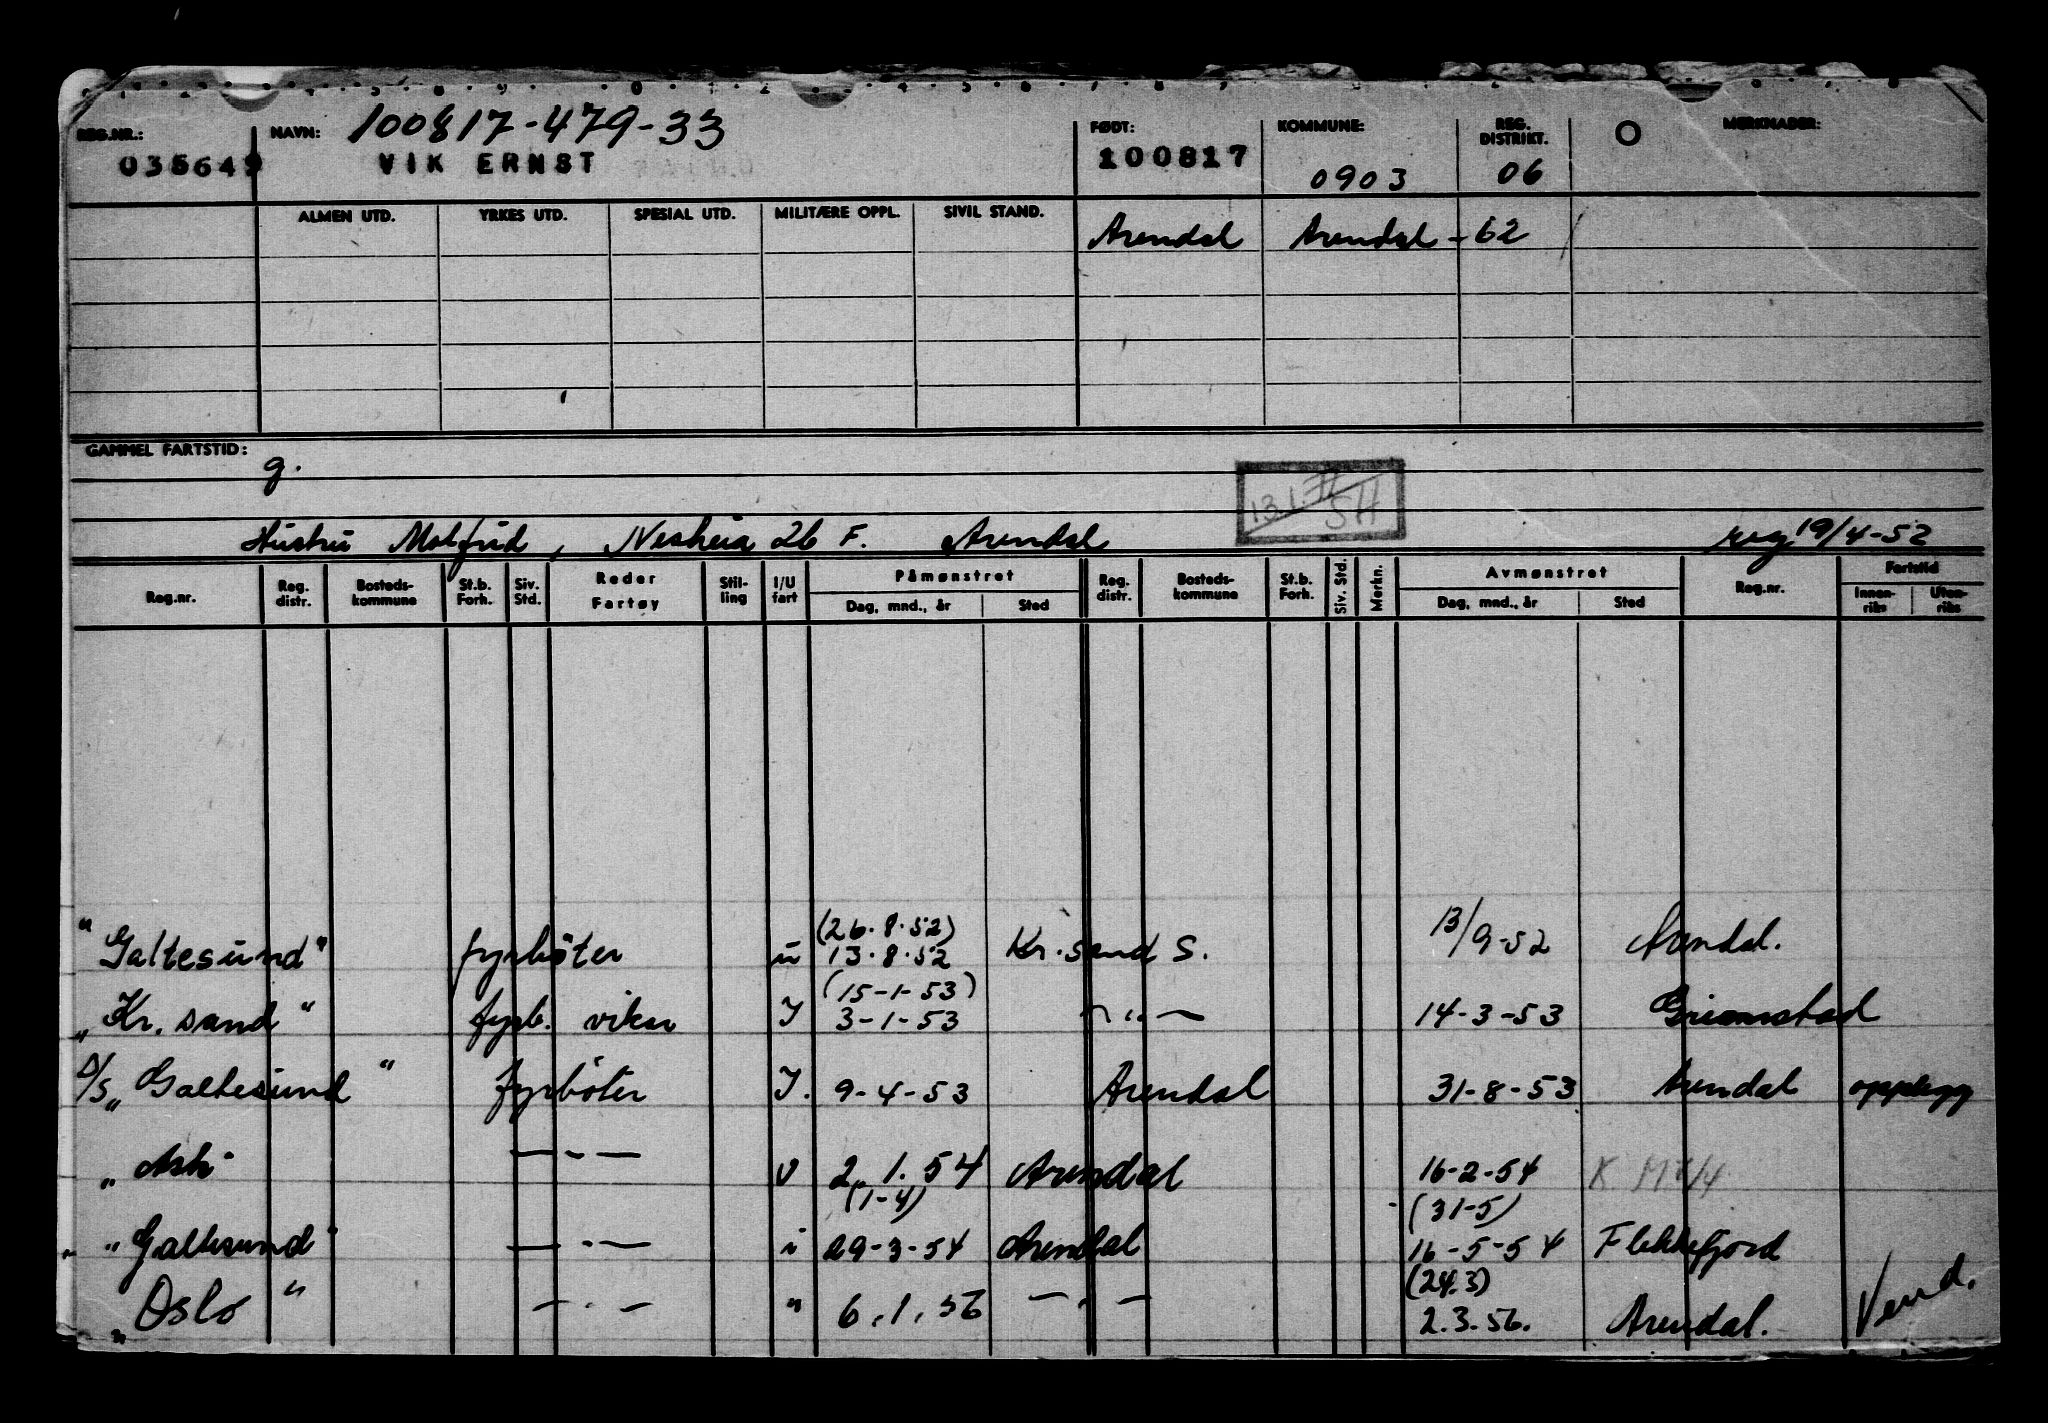 REG.NR.: NAVN: 100817-479-33 FØDT: KOMMUNE: REG. DISTRIKT. MERKNADER:
035649 VIK ERNST 100817 0903 06
ALMEN UTD. YRKES UTD. SPESIAL UTD. MILITÆRE OPPL. SIVIL STAND. Arendal Arendal - 62
GAMMEL FARTSTID: g.
13.1.71 SH
Hustru Molfrid, Neskeia 26 F. Arendal reg 19/4-52
Reg.nr. Reg. distr. Bosteds-kommune St.b. Forh. Siv. Std. Reder Fartøy Stil-ling I/U fart Påmønstret Reg. distr. Bosteds-kommune St.b. Forh. Siv. Std. Merkn. Avmønstret Reg.nr. Fartstid
Dag, mnd., år Sted Dag, mnd., år Sted Innen-riks Uten-riks
(26.8.52)
"Galtesund" fyrbøter u 13.8.52 Kr.sand S. 13/9-52 Arendal.
(15-1-53)
"Kr.sand" fyrb. vikar I 3-1-53 — " — 14-3-53 Grimstad
D/S "Galtesund" fyrbøter I. 9-4-53 Arendal 31-8-53 Arendal opplegg
"Ask" — " — U 2.1.54 Arendal 16-2-54
(1-4) (31-5)
"Galtesund" — " — i 29-3-54 Arendal 16-5-54 Flekkefjord
(24.3)
"Oslo" — " — " 6.1.56 — " — 2.3.56. Arendal. Vend.